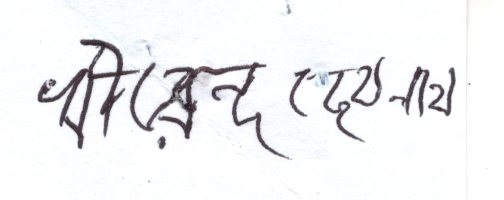 ধীরেন্দ্র দেবনাথ